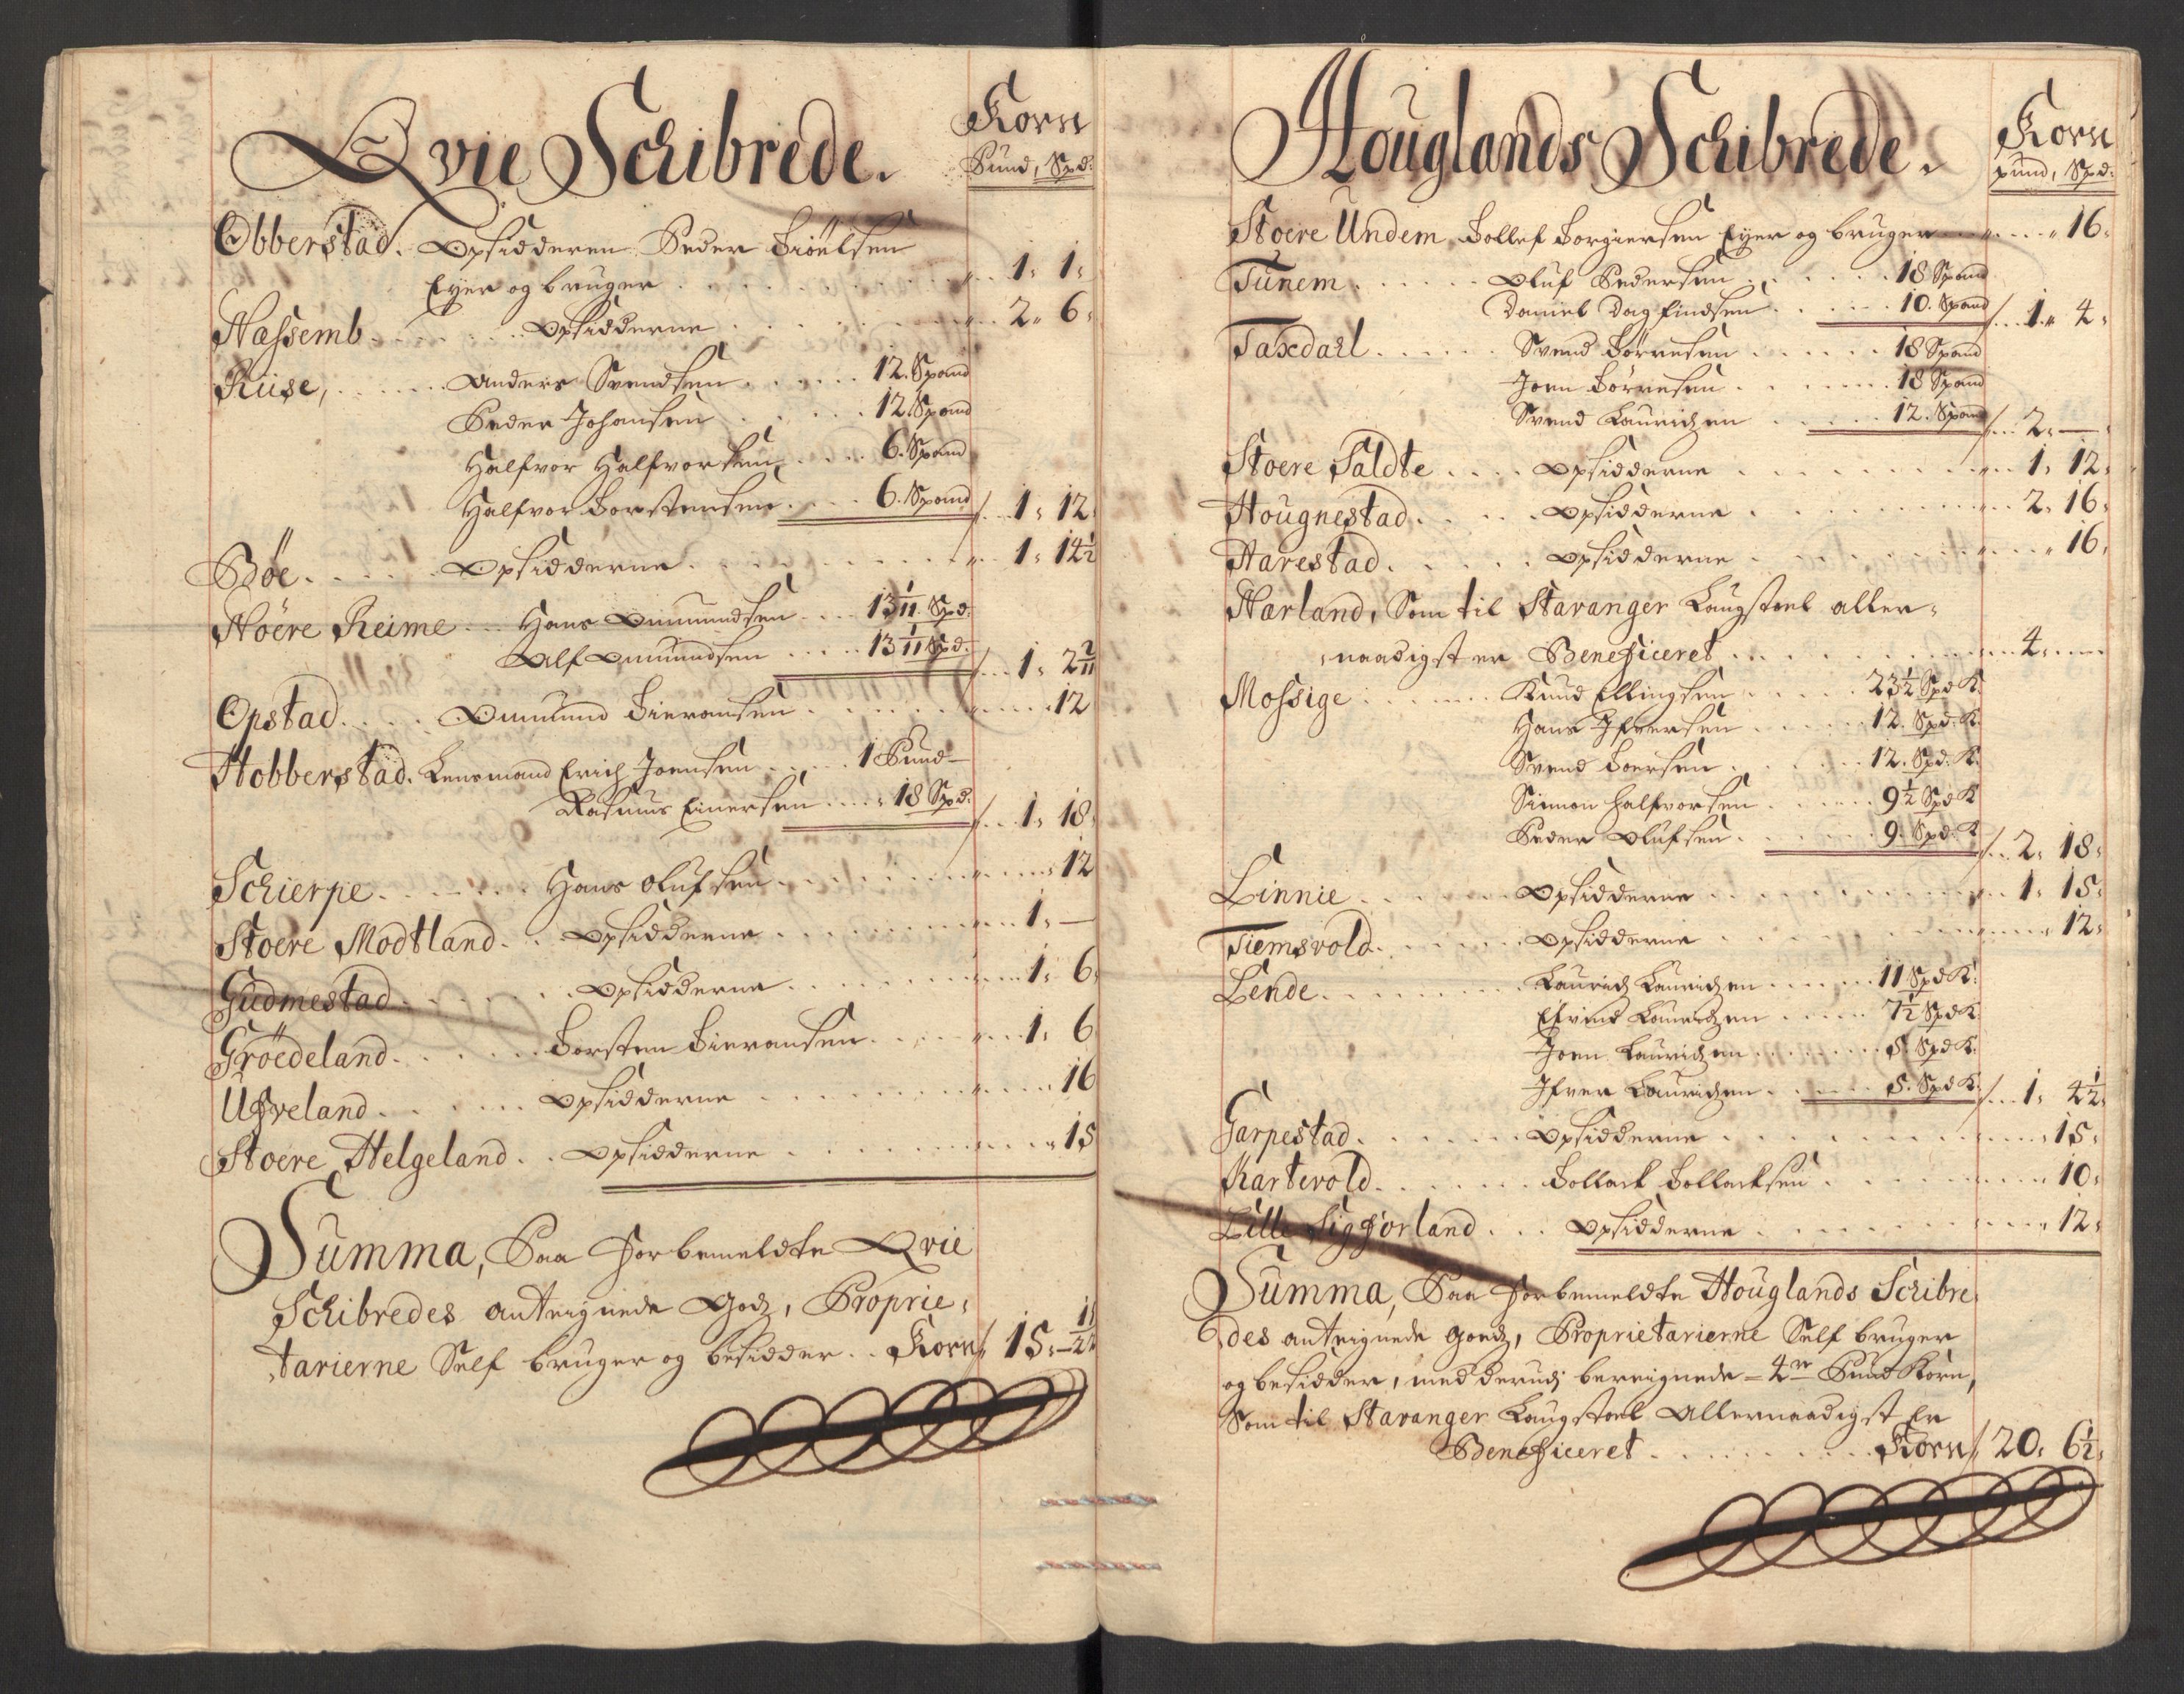 Qvie Schibrede. Korn
Pund, Spd:
Obberstad. Opsidderen Peder Tiölsen
Eyer og bruger . . . 1, 1,
Nassemb . . . Opsidderne . . . 2, 6,
Riise, . . . Anders Svendsen . . . 12. Spand
Peder Johansen . . . 12. Spand
Halfvor Halfvorsen . . . 6. Spand
Halfvor Torstensen . . . 6. Spand 1, 12,
Böe . . . Opsidderne . . . 1, 14½
Nöere Reime . . . Hans Ommundsen . . . 13 1/11 Spd:
Alf Omundsen . . . 13 1/11 Spd. 1, 2 2/11
Opstad . . . Ommund Tieransen . . . 12
Hobberstad. Lensmand Erich Joensen . . . 1 Pund —
Rasmus Einersen . . . 18 Spd. 1, 18,
Schierpe . . . Hans Olufsen . . . 12
Stoere Modtland . . . Opsidderne . . . 1, —
Gudmestad . . . Opsidderne . . . 1, 6,
Gröedeland . . . Torsten Tieransen . . . 1, 6
Ufveland . . . Opsidderne . . . 16
Stoere Helgeland . . Opsidderne . . . 15
Summa, Paa forbemeldte Qvie
Schibredes anteignede Godz, Proprie,
tarierne Self bruger og besidder . . Korn 15, — 11/22
Houglands Schibrede. Korn
pund, Spd:
Stoere Undem Tollef Torgiersen Eyer og bruger . . . 16,
Tunem . . . Oluf Pedersen . . . 18 Spand
Daniel Dagfindsen . . . 10. Spand 1, 4,
Taxdall . . . Svend Törresen . . . 18 Spand
Joen Törresen . . . 18 Spand
Svend Lauridzen . . . 12. Spand 2, —
Stoere Saldte . . . Opsidderne . . . 1, 12,
Hougnestad . . . Opsidderne . . . 2, 16,
Harestad . . . Opsidderne . . . 16,
Harland, Som til Stavanger Laugstoel aller,
,naadigst er Beneficeret . . . 4,
Mossige . . . Knud Ellingsen . . . 23½ Spd K.
Hans Ifversen . . . 12. Spd. K.
Svend Toersen . . . 12. Spd. K.
Simon halfvorsen . . . 9½ Spd K
Peder Olufsen . . . 9. Spd. K 2, 18,
Linnie . . . Opsidderne . . . 1, 15,
Tiemsvold . . . Opsidderne . . . 12,
Lende . . . Laurids Lauridzen . . . 11 Spd K.
Efvind Lauridzen . . . 7½ Spd K.
Joen Lauridzen . . . 5. Spd K.
Ifver Lauridzen . . . 5. Spd K. 1, 4½,
Garpestad . . . Opsidderne . . . 15,
Kartevold . . . Tollach Tollachsen . . . 10,
Lille Sigforland . . . Opsidderne . . . 12,
Summa, Paa forbemeldte Houglands Schibre,
des anteignede Goedz, Proprietarierne Self bruger
og besidder, med derudj bereignede = 4re Pund Korn,
Som til Stavanger Laugstoel Allernaadigst Er
Beneficeret . . . Korn 20, 6½,